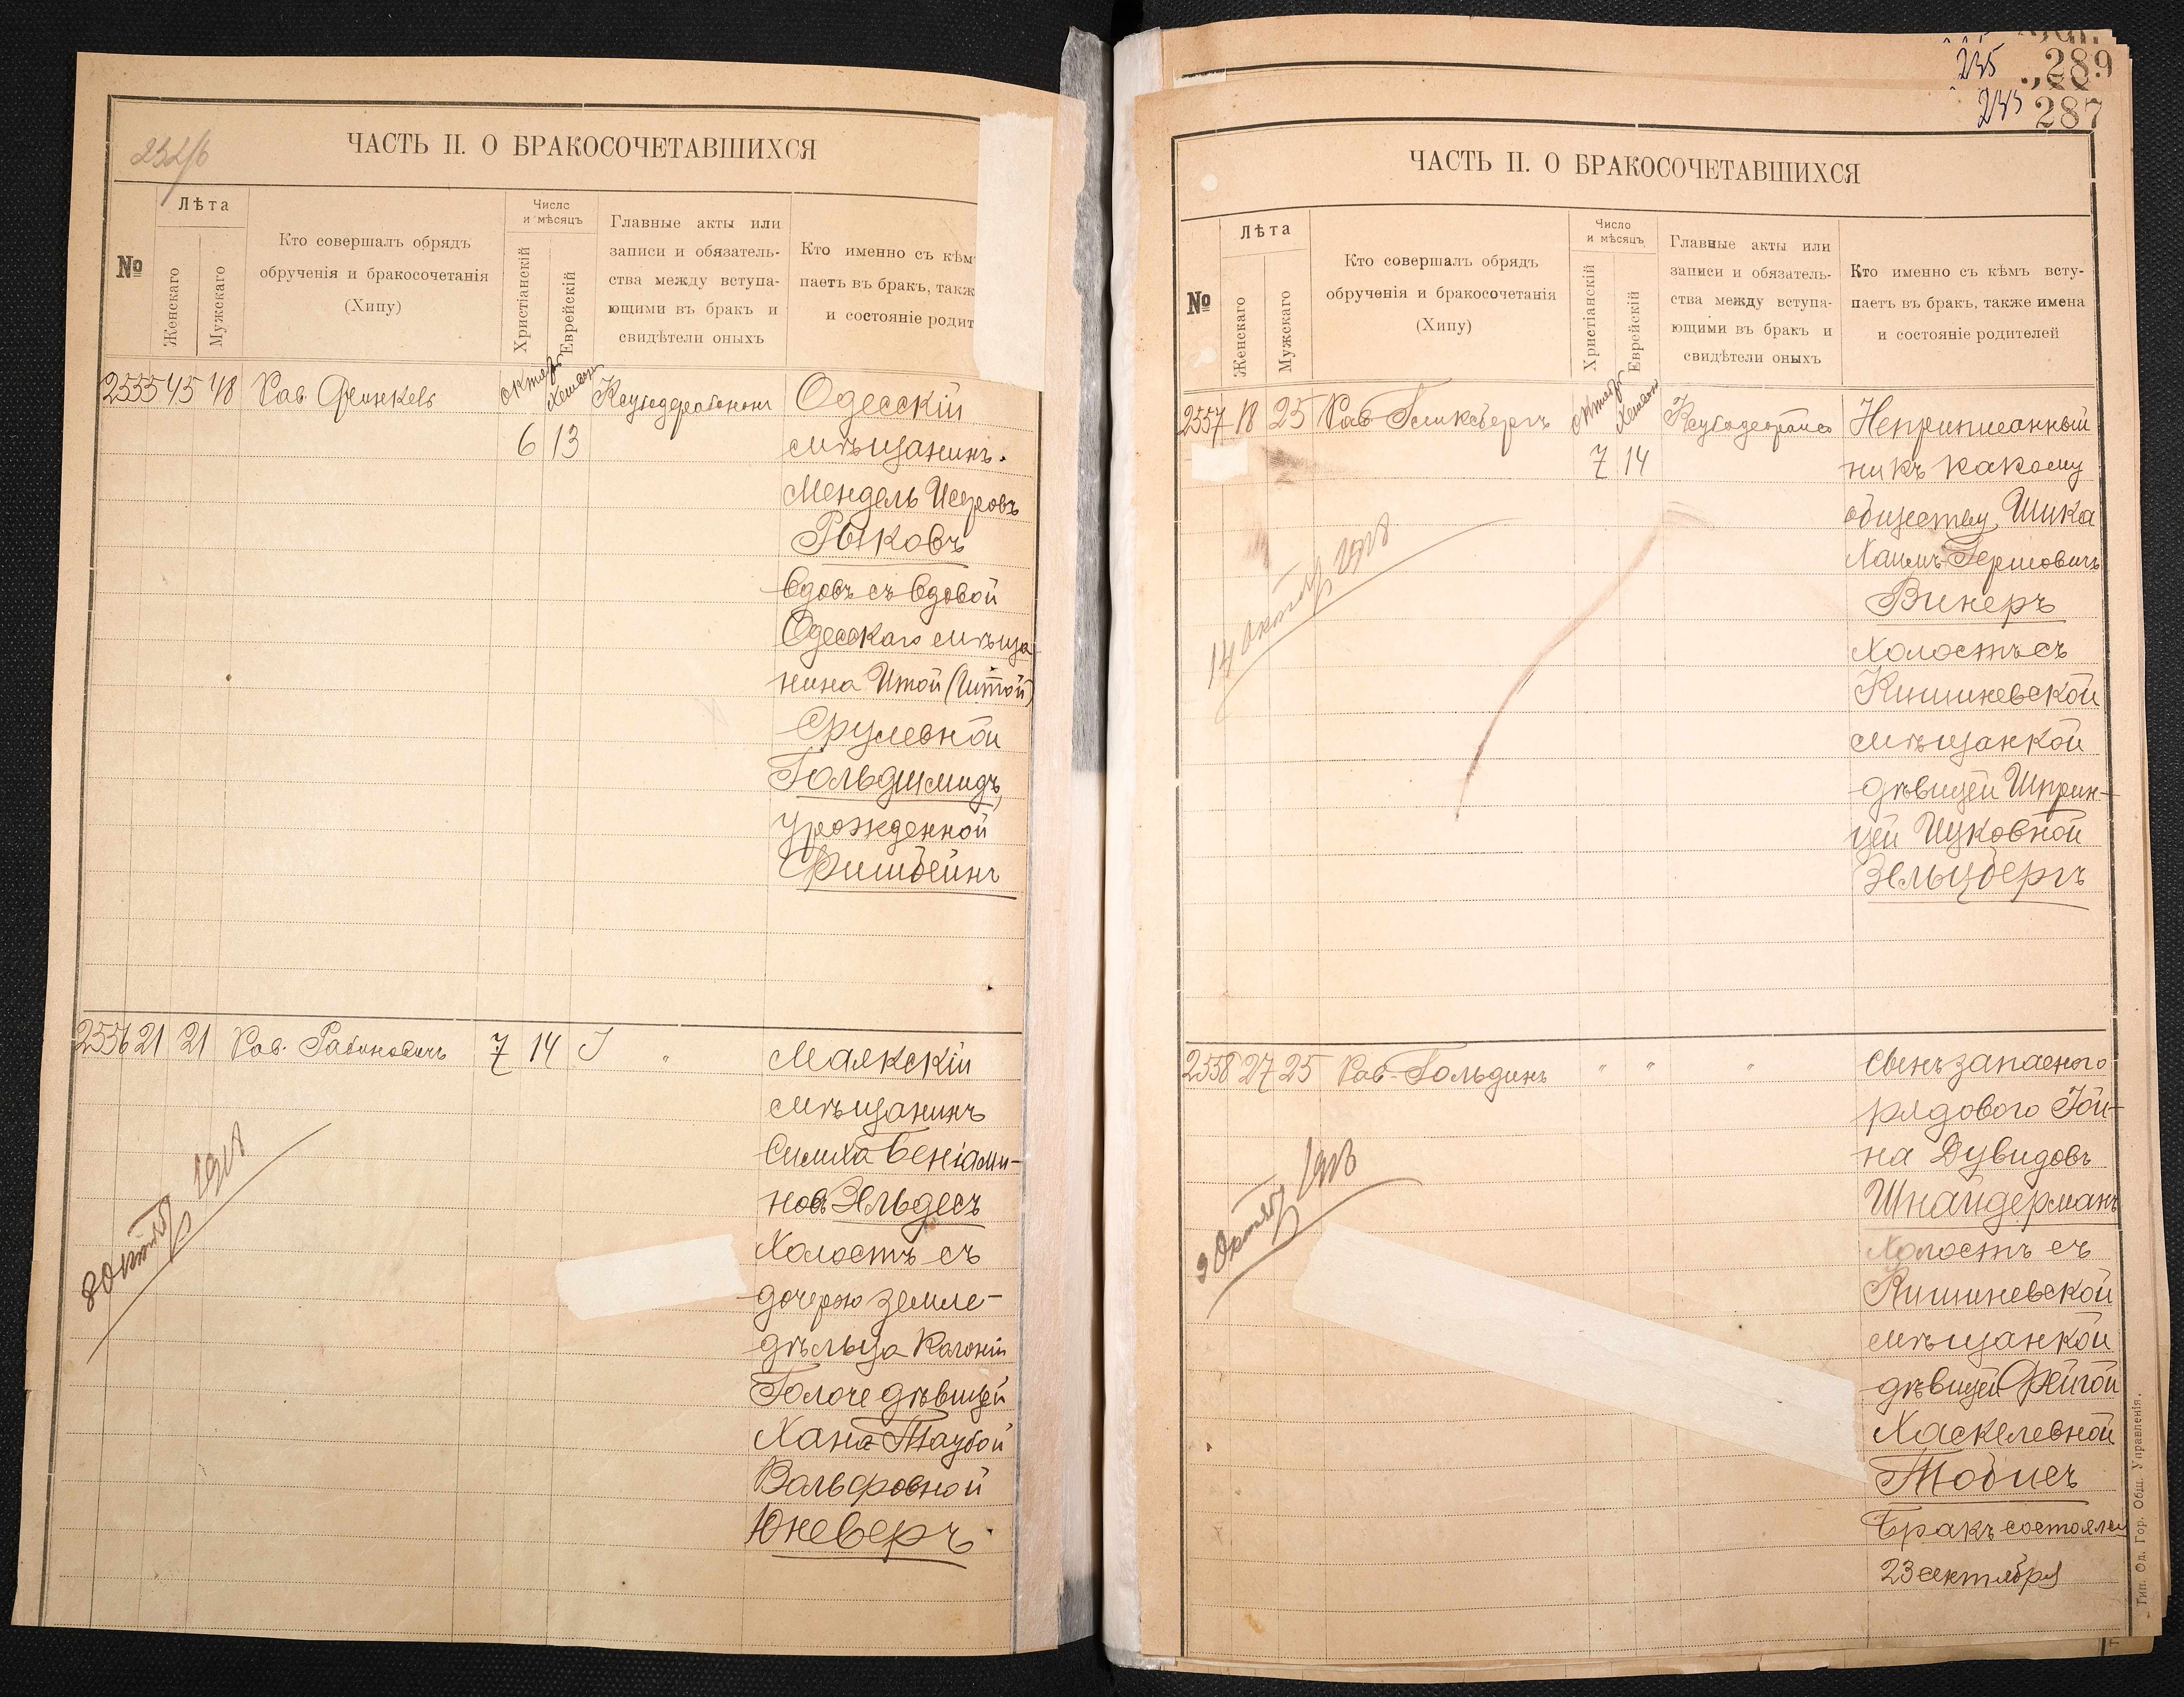 232/б
ЧАСТЬ II. О БРАКОСОЧЕТАВШИХСЯ
№
Лѣта
Женскаго
Мужскаго
Кто совершалъ обрядъ
обрученія и бракосочетанія
(Хипу)
Число
и мѣсяцъ
Христіанскій
Еврейскій
Главные акты или
записи и обязатель-
ства между вступа-
ющими въ бракъ и
свидѣтели оныхъ
Кто именно съ кѣм
паетъ въ бракъ, такж
и состояніе родит
2555 45 48 Рав. Финкель
6 13
Одесскій
мѣщанинъ
Мендель Исеровъ
Рыковъ
вдовъ съ вдовой
Одесскаго мѣща
нина Итой (Итой)
Срулевной
Гольдшмидъ,
урожденной
Фишбейнъ
2556 21 21 Рав. Рабиновичъ 7 14 "
Маякскій
мѣщанинъ
Симха Беніами-
новъ Эльдесъ
Холостъ съ
дочерью земле-
дѣльца Колоніи
дѣвицей
Хана-Таубой
Вольфовной
Юневеръ
8 Октяб 1918
235 289
287
ЧАСТЬ II. О БРАКОСОЧЕТАВШИХСЯ
№
Лѣта
Женскаго
Мужскаго
Кто совершалъ обрядъ
обрученія и бракосочетанія
(Хипу)
Число
и мѣсяцъ
Христіанскій
Еврейскій
Главные акты или
записи и обязатель-
ства между вступа-
ющими въ бракъ и
свидѣтели оныхъ
Кто именно съ кѣмъ всту-
паетъ въ бракъ, также имена
и состояніе родителей
2557 18 25 Рав.
7 14
Неприписанный
ни къ какому
обществу Шика
Хаимъ-Гершовичъ
Винеръ
Холостъ съ
Кишиневской
мѣщанкой
дѣвицей Шприн-
цей Ицковной
Зельцбергъ
14 октяб 1918
2558 27 25 Рав. Гольдинъ " " "
Сынъ запаснаго
рядового Іой-
на Дувидовъ
Шнайдерманъ
Холостъ съ
Кишиневской
мѣщанкой
дѣвицей Фейгой
Хаскелевной
Тобисъ
Бракъ состоялся
23 сентября
9 Октяб 1918
Тип. Од. Гор. Общ. Управленія.